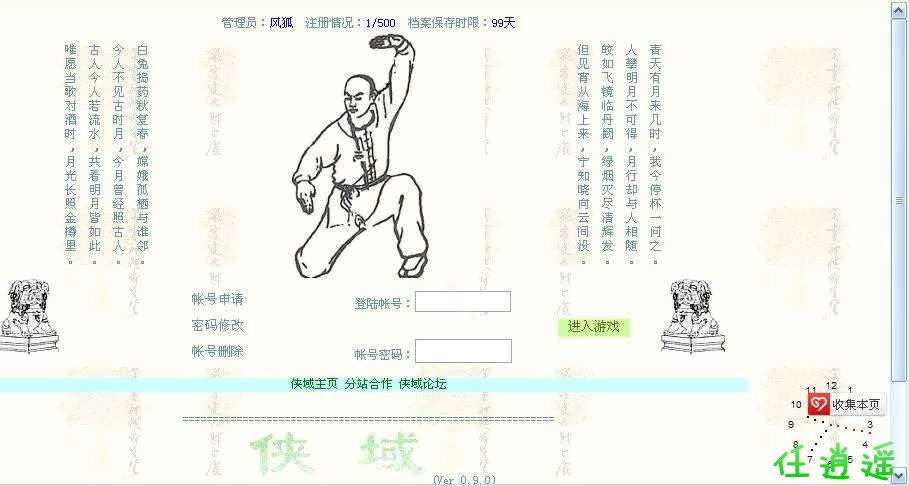 管理员：风狐 注册情况：1/500 档案保存时限：99天
青天有月来几时，我今停杯一问之。
人攀明月不可得，月行却与人相随。
皎如飞镜临丹阙，绿烟灭尽清辉发。
但见宵从海上来，宁知晓向云间没。
白兔捣药秋复春，嫦娥孤栖与谁邻。
今人不见古时月，今月曾经照古人。
古人今人若流水，共看明月皆如此。
唯愿当歌对酒时，月光长照金樽里。
帐号申请
登陆帐号：
密码修改
进入游戏
帐号删除
帐号密码：
侠域主页 分站合作 侠域论坛
侠域
(Ver 0.9.0)
收集本页
11 12 1
10
9 3
8 4
7
任逍遥